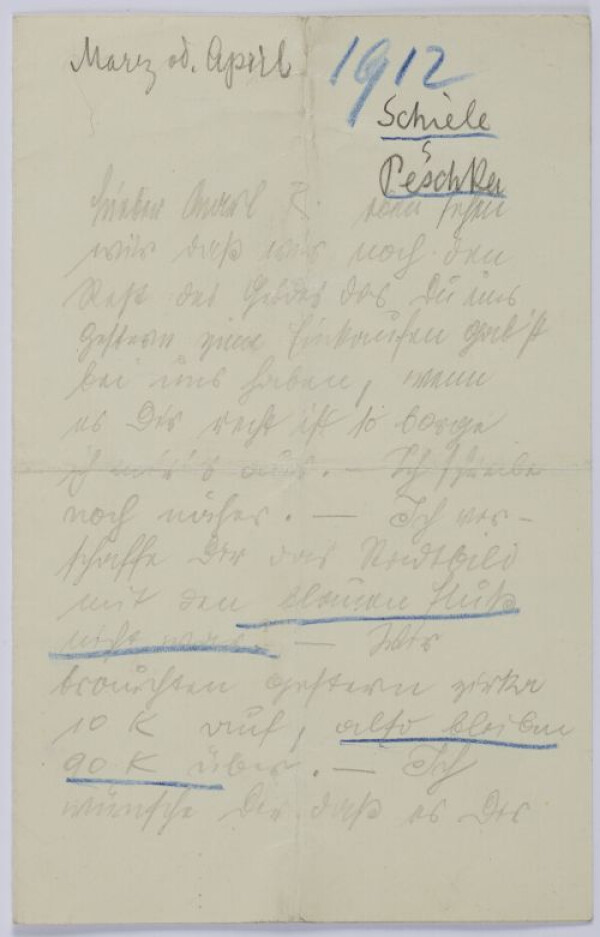 Marz od. April 1912
Schiele
Peschka
Lieber Onkel R. eben sehen
wir daß wir noch den
Rest des Geldes das Du uns
gestern zum Einkaufen gab'st
bei uns haben, wenn
es Dir recht ist so borge
ich mir's aus. — Ich schreibe
noch näher. — Ich ver-
schaffe Dir das Stadtbild
mit den blauen Fluß
nicht wahr. — Wir
brauchten gestern zirka
10 K auf, also bleiben
90 K über. — Ich
wünsche Dir daß es Dir